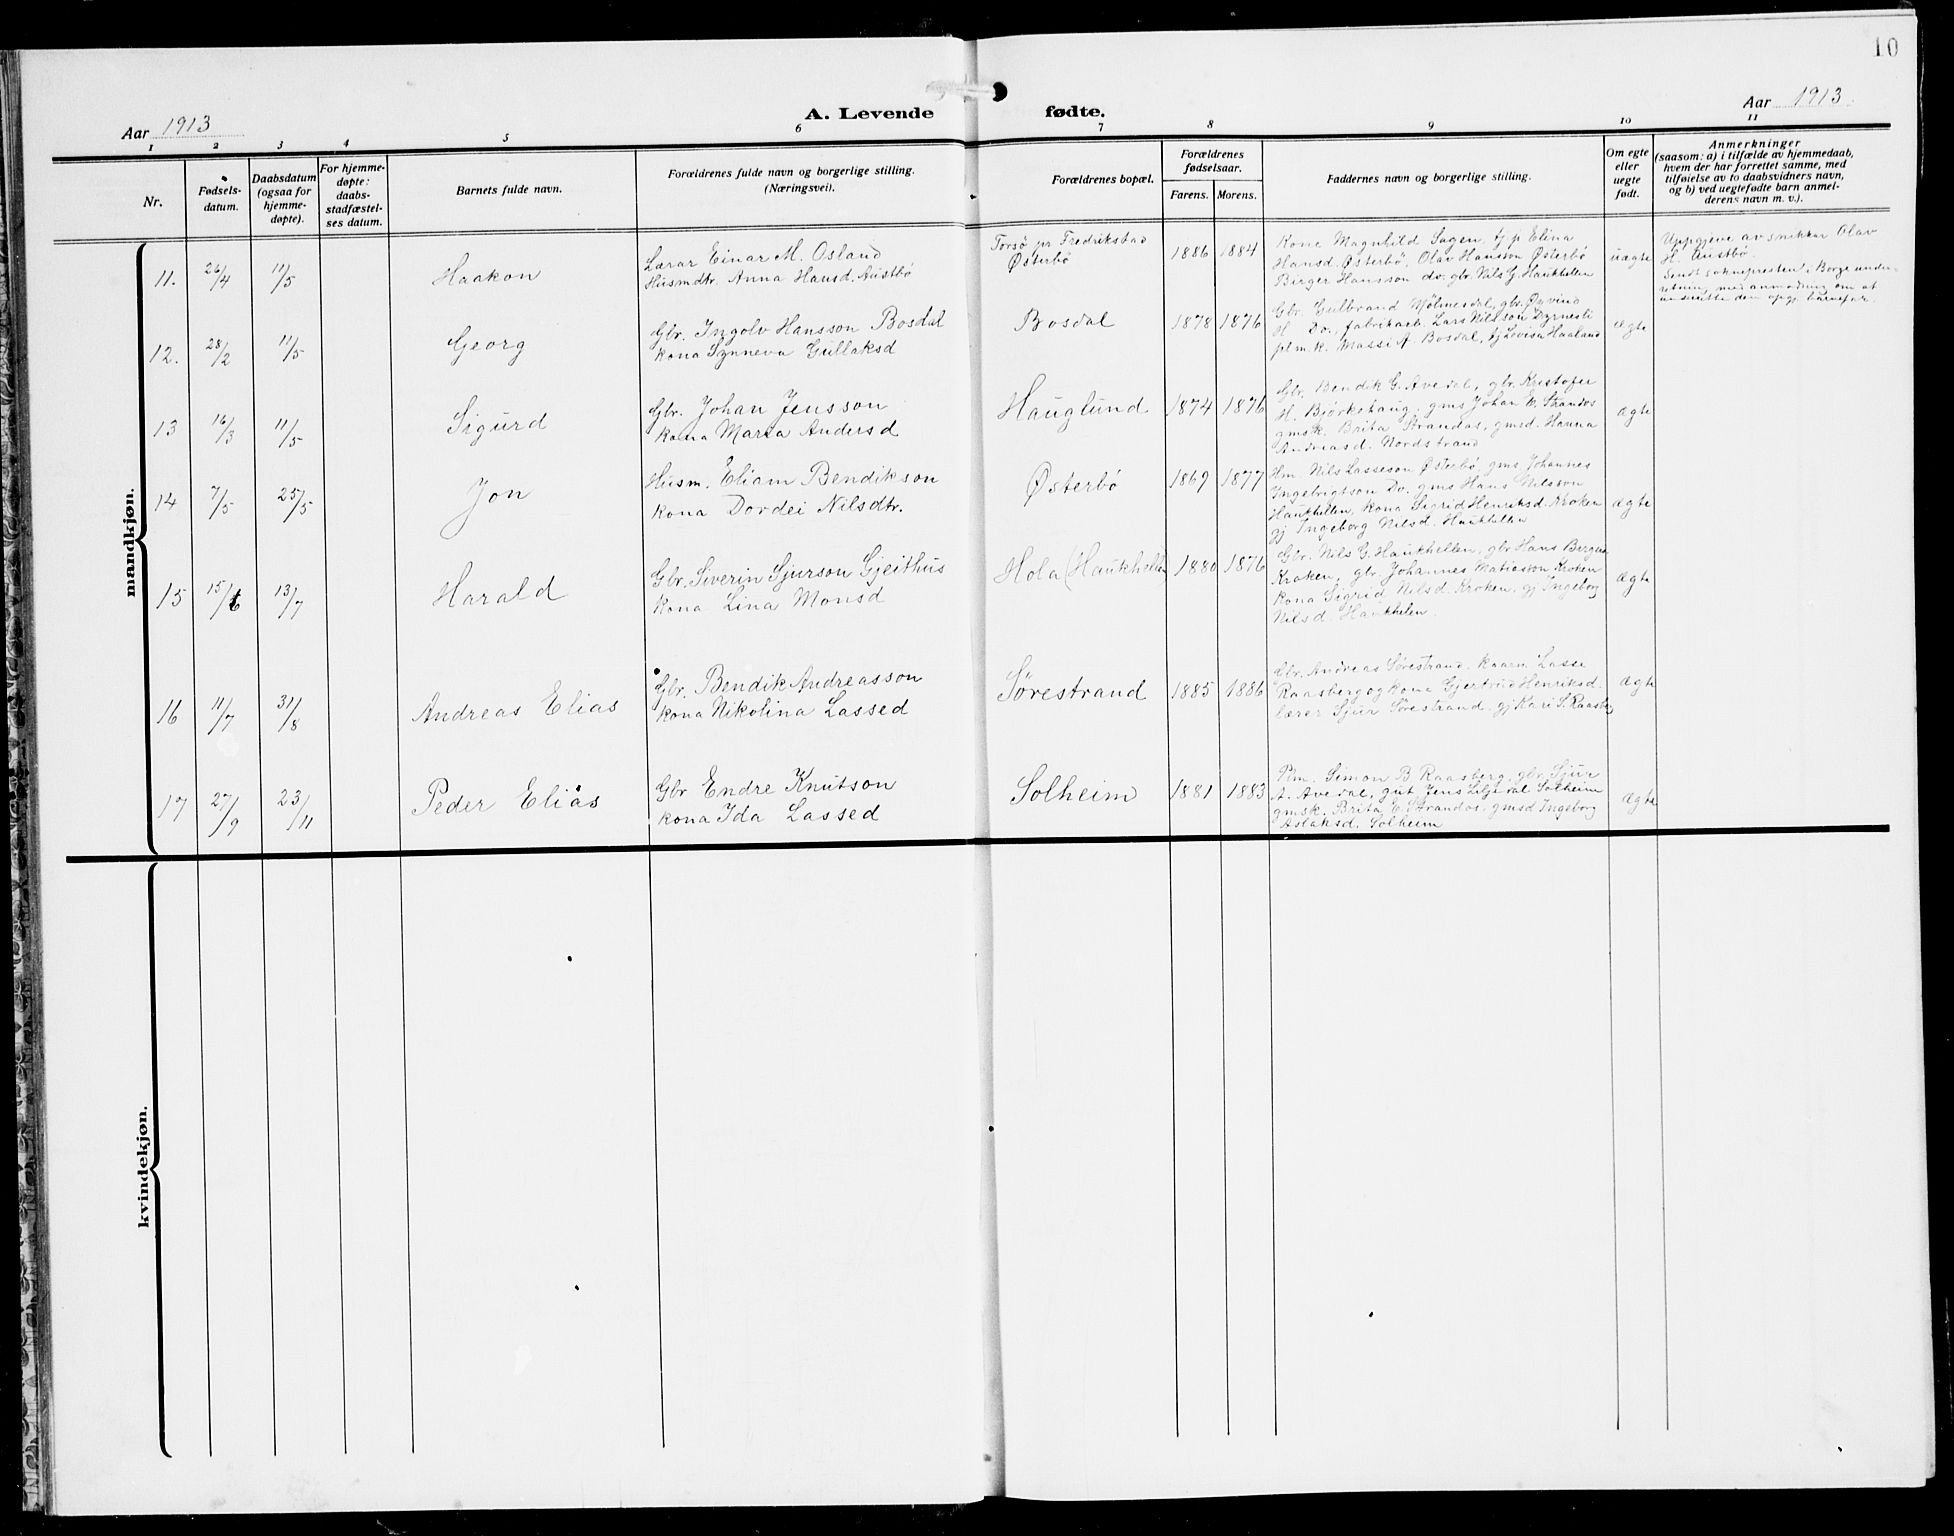 10
Aar 1913
A. Levende fødte.
Aar 1913
1 2 3 4 5 6 7 8 9 10 11
Nr.
Fødsels-
datum.
Daabsdatum
(ogsaa for
hjemme-
døpte).
For hjemme-
døpte:
daabs-
stadfæstel-
ses datum.
Barnets fulde navn.
Forældrenes fulde navn og borgerlige stilling.
(Næringsvei).
Forældrenes bopæl.
Forældrenes
fødselsaar.
Farens. Morens.
Faddernes navn og borgerlige stilling.
Om egte
eller
uegte
født.
Anmerkninger
(saasom: a) i tilfælde av hjemmedaab,
hvem der har forrettet samme, med
tilføielse av to daabsvidners navn,
og b) ved uegtefødte barn anmel-
derens navn m. v.).
mandkjøn.
11. 26/4 11/5 Haakon
Lærar Einar M. Osland
Husmdtr. Anna Hansd. Austbø
Torsø pr Fredrikstad
Østerbø
1886 1884
Kona Magnhild Sagen, tj p Elina
Hansd. Østerbö, Olav Hanson Østerbö
Birger Hansson do. gbr. Nils G. Haukhellen
uægte
Uppgjeve av snikkar Olav
H. Austbö.
Sendt soknepresten i Borge under-
retning, med anmodning om at
underrette den opgj. barnefar.
12. 28/2 11/5 Georg
Gbr. Ingolv Hansson Bosdal
kona Synneva Gullaksd
Bosdal
1878 1876
Gbr. Gulbrand Mjölmesdal, gbr. Øyvind
H. Do., fabrikarb. Lars Nilsson Dyrnesli
plm.k. Massi A. Bosdal, tj Lovisa Haaland
ægte
13 16/3 11/5 Sigurd
Gbr. Johan Jensson
kona Marta Andersd
Hauglund
1874 1876
Gbr. Bendik G. Avedal, gbr. Kristofer
H. Björkehaug, gms Johan W. Strandos
gmsk. Brita Strandos, gmsd. Hanna
Andreasd. Nordstrand
ægte
14 7/5 25/5 Jon
Husm. Eliam Bendikson
kona Dordei Nilsdtr.
Østerbö
1869 1877
Hm. Nils Lasseson Østerbö, gms Johannes
Ingebrigtson Do. gms Hans Nilsson
Haukhellen, kona Sigrid Henriksd. Kroken
gj Ingeborg Nilsd. Haukhellen
ægte
15 15/6 13/7 Harald
Gbr. Siverin Sjurson Gjeithus
kona Lina Monsd
Hola (Haukhellen
1880 1876
Gbr. Nils G. Haukhellen, gbr Hans
Kroken, gbr. Johannes Matiasson Kroken
kona Sigrid Nilsd. Kroken, gj Ingeborg
Nilsd. Haukhelen.
ægte
16 11/7 31/8 Andreas Elias
Gbr. Bendik Andreasson
kona Nikolina Lassed
Sørestrand
1885 1886
Gbr. Andreas Sørestrand, kaarm. Lasse
Raasberg og kona Gjertrud Henriksd.
lærer Sjur Sørestrand, gj Kari S. Raasberg
ægte
17 27/9 23/11 Peder Elias
Gbr Endre Knutson
kona Ida Lassed
Solheim
1881 1883
Plm. Simon B Raasberg, gbr. Sjur
A. Avedal, gut Jens Liljedal Solheim
gmsk. Brita E. Strandos, gmsd Ingeborg
Aslaksd. Solheim
ægte
kvindekjøn.